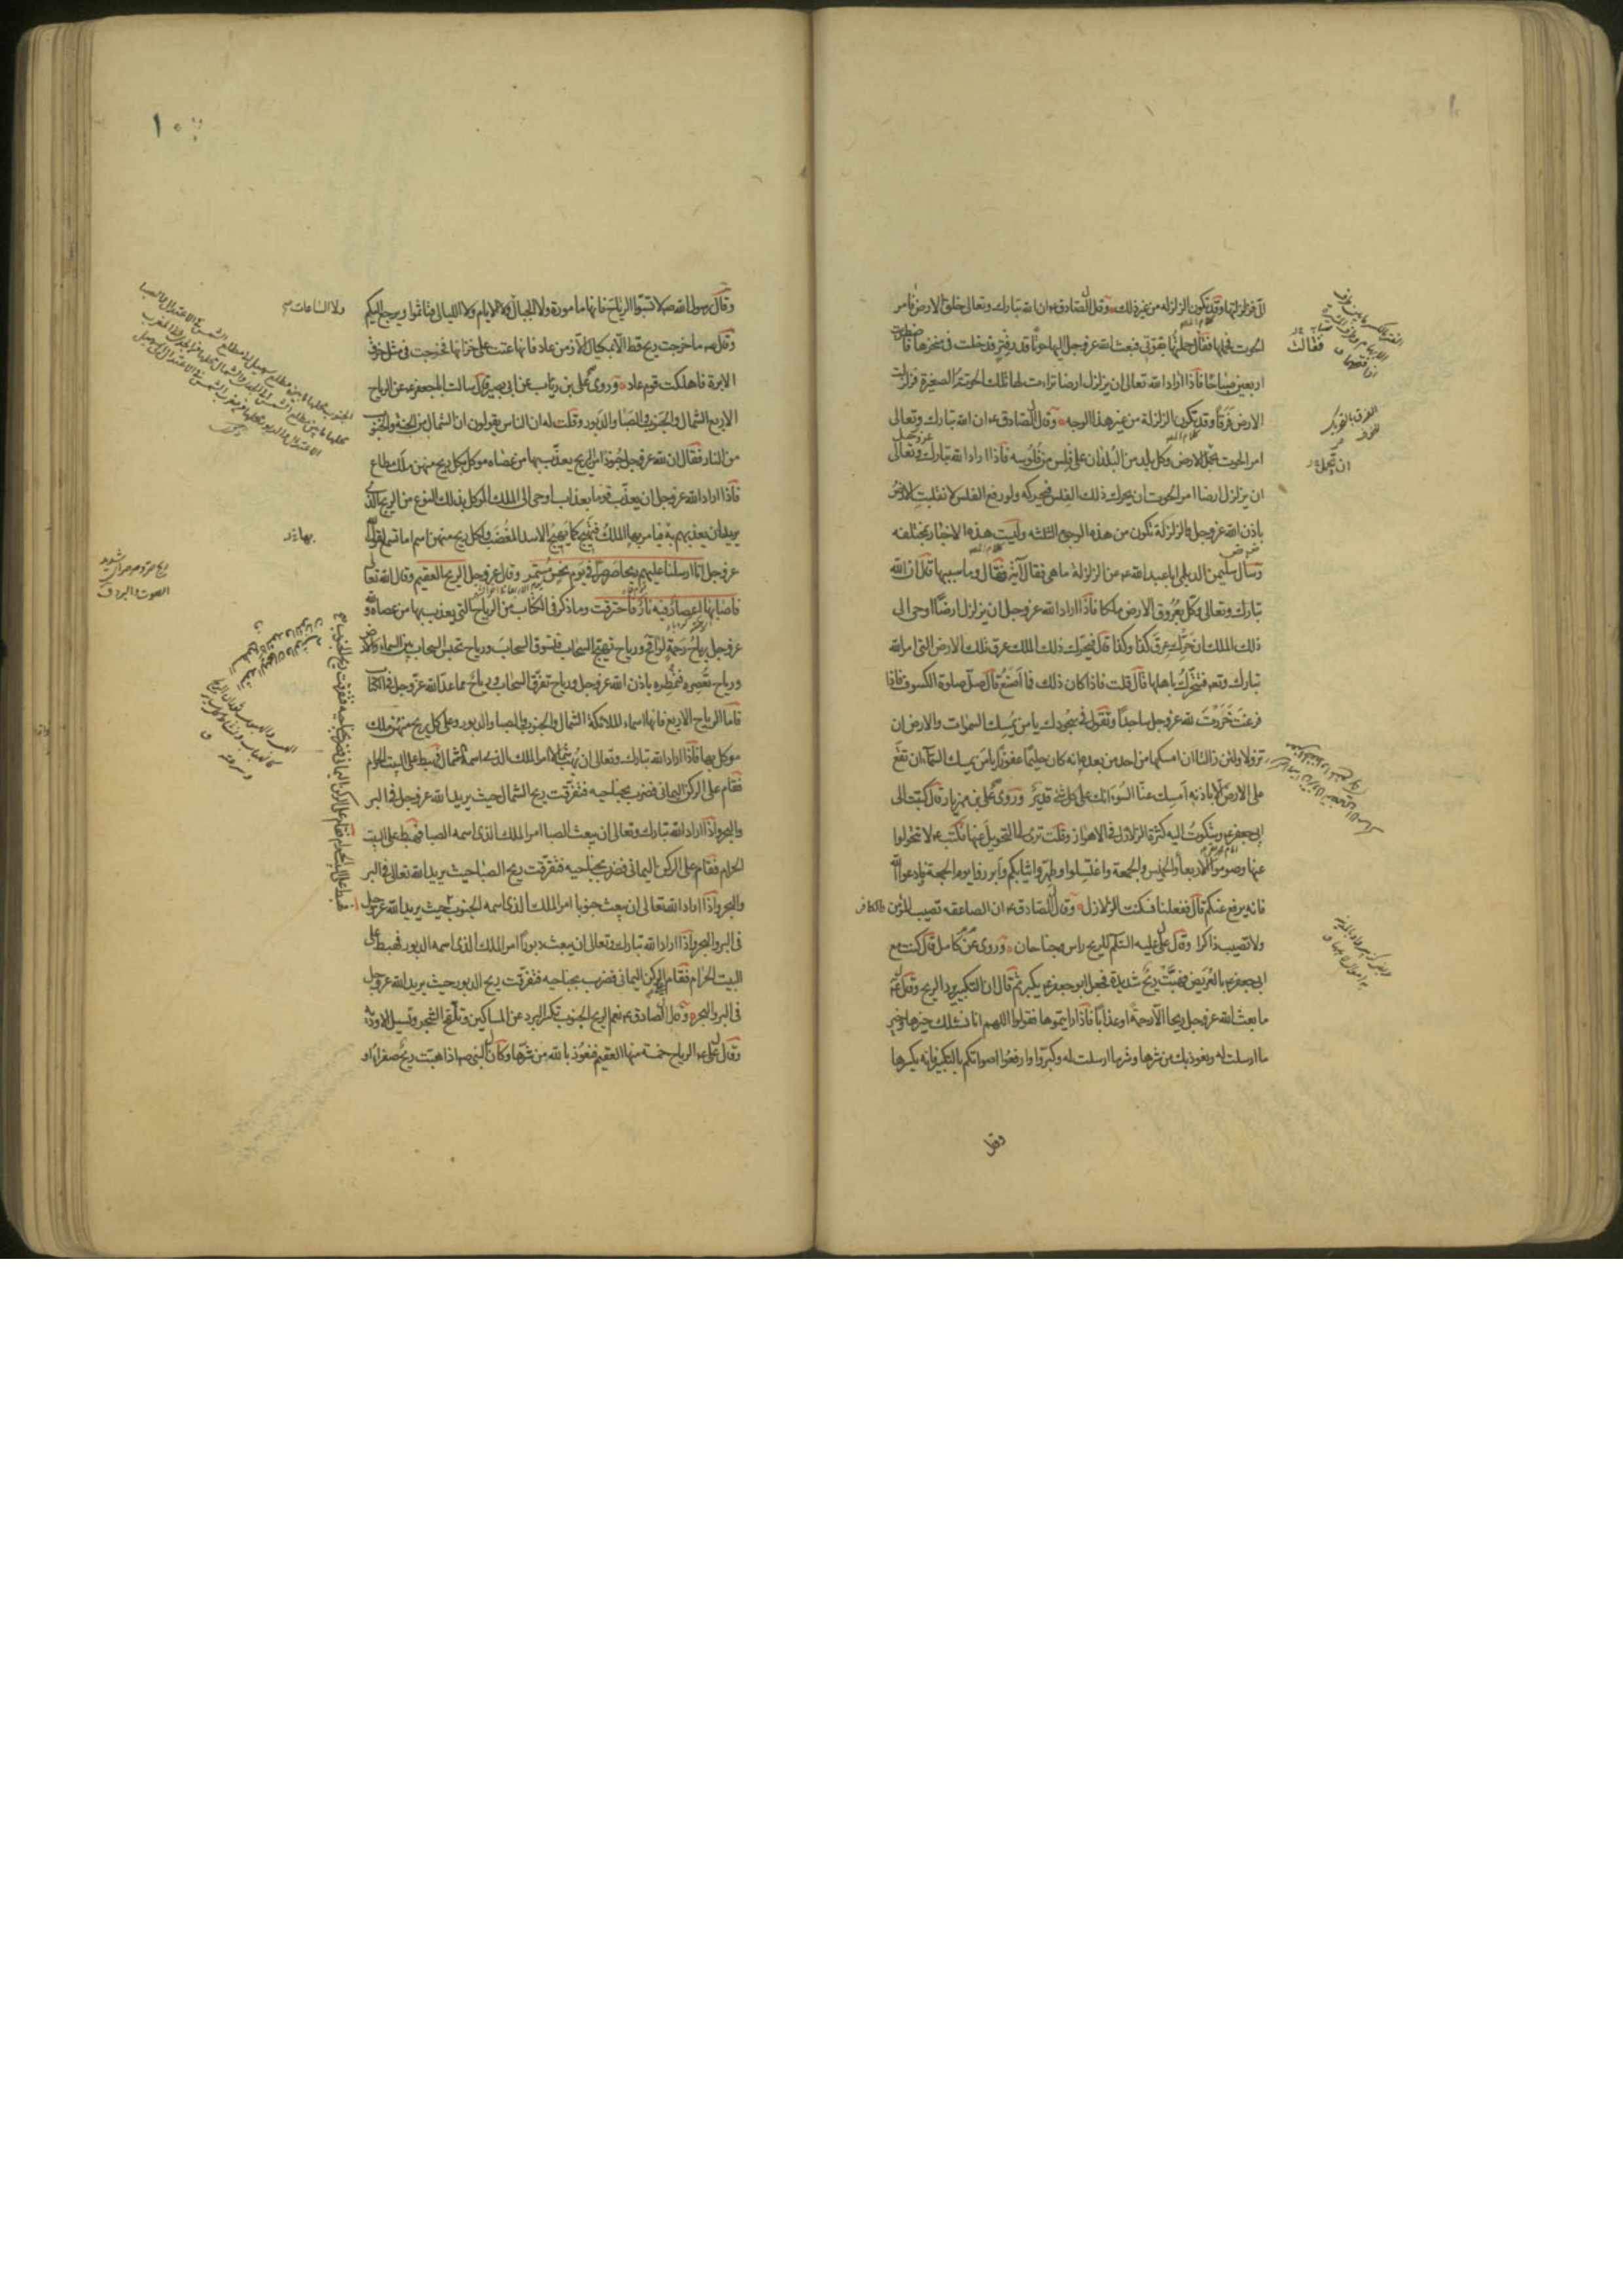 الى فزلزلتها وقد تكون الزلزلة من غير ذلك وقال الصادق ع ان الله تبارك وتعالى خلق الارض فامر
الحوت فحملتها فقالت حملتها بقوتى فبعث الله عز وجل اليها حوتا قدر فتر فدخلت فى منخرها فاضطربت
اربعين صباحا فاذا اراد الله تعالى ان يزلزل ارضا تراءت لها تلك الحوتة الصغيرة فزلزلت
الارض فرقا وقد تكون الزلزلة من غير هذا الوجه وقال الصادق ع ان الله تبارك وتعالى
امر الحوت بحمل الارض وكل بلد من البلدان على فلس من فلوسه فاذا اراد الله تبارك وتعالى
ان يزلزل ارضا امر الحوت ان يحرك ذلك الفلس فيحركه ولو رفع الفلس لانقلبت الارض
باذن الله عز وجل والزلزلة تكون من هذه الوجوه الثلثة وليست هذه الاخبار بمختلفه
وسال سليمن الديلمى ابا عبد الله ع عن الزلزلة ما هى فقال آية فقال وما سببها قال ان الله
تبارك وتعالى وكل بعروق الارض ملكا فاذا اراد الله عز وجل ان يزلزل ارضا اوحى الى
ذلك الملك ان حرك عرق كذا وكذا قال فيحرك ذلك الملك عرق تلك الارض التى امر الله
تبارك وتعم فتتحرك باهلها قال قلت فاذا كان ذلك فما اصنع قال صل صلوة الكسوف فاذا
فرغت خررت لله عز وجل ساجدا وتقول فى سجودك يا من يمسك السموات والارض ان
تزولا ولئن زالتا ان امسكهما من احد من بعده انه كان حليما غفورا يا من يمسك السماء ان تقع
على الارض الا باذنه امسك عنا السوء انك على كل شئ قدير وروى على بن مهزيار قال كتبت الى
ابى جعفر ع وشكوت اليه كثرة الزلازل فى الاهواز وقلت ترى لنا التحويل عنها فكتب ع لا تتحولوا
عنها وصوموا الاربعاء والخميس والجمعة واغتسلوا وطهروا ثيابكم وابرزوا يوم الجمعة وادعوا الله
فانه يرفع عنكم قال ففعلنا فسكنت الزلازل وقال الصادق ع ان الصاعقه تصيب المؤمن والكافر
ولا تصيب ذاكرا وقال على عليه السلم للريح راس وجناحان وروى عن كامل قال كنت مع
ابى جعفر ع بالعريض فهبت ريح شديدة فجعل ابو جعفر ع يكبر ثم قال ان التكبير يرد الريح وقال ع
ما بعث الله عز وجل ريحا الا رحمة او عذابا فاذا رايتموها فقولوا اللهم انا نسئلك خيرها وخير
ما ارسلت له ونعوذ بك من شرها وشر ما ارسلت له وكبروا وارفعوا اصواتكم بالتكبير فانه يكسرها
وقال
فقالت
ان تحمل
١٠
وقال رسول الله ص لا تسبوا الرياح فانها مامورة ولا الجبال ولا الايام ولا الليالى فتاثموا ويرجع اليكم
ولا الساعات
وقال ع ما خرجت ريح قط الا بمكيال الا زمن عاد فانها عتت على خزانها فخرجت فى مثل خرق
الابرة فاهلكت قوم عاد وروى على بن رئاب عن ابى بصير قال سالت ابا جعفر ع عن الرياح
الاربع الشمال والجنوب والصبا والدبور وقلت له ان الناس يقولون ان الشمال من الجنة والجنوب
من النار فقال ان لله عز وجل جنودا من الريح يعذب بها من عصاه موكل بكل ريح منهن ملك مطاع
فاذا اراد الله عز وجل ان يعذب قوما بعذاب اوحى الى الملك الموكل بذلك النوع من الريح الذى
يريد ان يعذبهم به فيامر بها الملك فتهيج كما يهيج الاسد المغضب ولكل ريح منهن اسم اما تسمع لقول الله
عز وجل انا ارسلنا عليهم ريحا صرصرا فى يوم نحس مستمر وقال عز وجل الريح العقيم وقال الله تعالى
فاصابها اعصار فيه نار فاحترقت وما ذكر فى الكتاب من الرياح التى يعذب بها من عصاه ولله
عز وجل رياح رحمة لواقح ورياح تهيج السحاب فتسوق السحاب ورياح تحبس السحاب بين السماء والارض
ورياح تعصره فتمطره باذن الله عز وجل ورياح تفرق السحاب ورياح مما عد الله عز وجل فى الكتاب
فاما الرياح الاربع فانها اسماء الملائكة الشمال والجنوب والصبا والدبور وعلى كل ريح منهن ملك
موكل بها فاذا اراد الله تبارك وتعالى ان يهب شمالا امر الملك الذى اسمه الشمال فهبط على البيت الحرام
فقام على الركن اليمانى فضرب بجناحيه فتفرقت ريح الشمال حيث يريد الله عز وجل فى البر
والبحر واذا اراد الله تبارك وتعالى ان يبعث الصبا امر الملك الذى اسمه الصبا فهبط على البيت
الحرام فقام على الركن اليمانى فضرب بجناحيه فتفرقت ريح الصبا حيث يريد الله تعالى فى البر
والبحر واذا اراد الله تعالى ان يبعث جنوبا امر الملك الذى اسمه الجنوب حيث يريد الله عز وجل
فى البر والبحر واذا اراد الله تبارك وتعالى ان يبعث دبورا امر الملك الذى اسمه الدبور فهبط على
البيت الحرام فقام على الركن اليمانى فضرب بجناحيه فتفرقت ريح الدبور حيث يريد الله عز وجل
فى البر والبحر وقال الصادق ع نعم الريح الجنوب تكسر البرد عن المساكين وتلقح الشجر وتسيل الاودية
وقال على ع الرياح خمسة منها العقيم فنعوذ بالله من شرها وكان النبى ص اذا هبت ريح صفراء او
فهبط على البيت الحرام فقام على الركن اليمانى فضرب بجناحيه فتفرقت ريح الجنوب